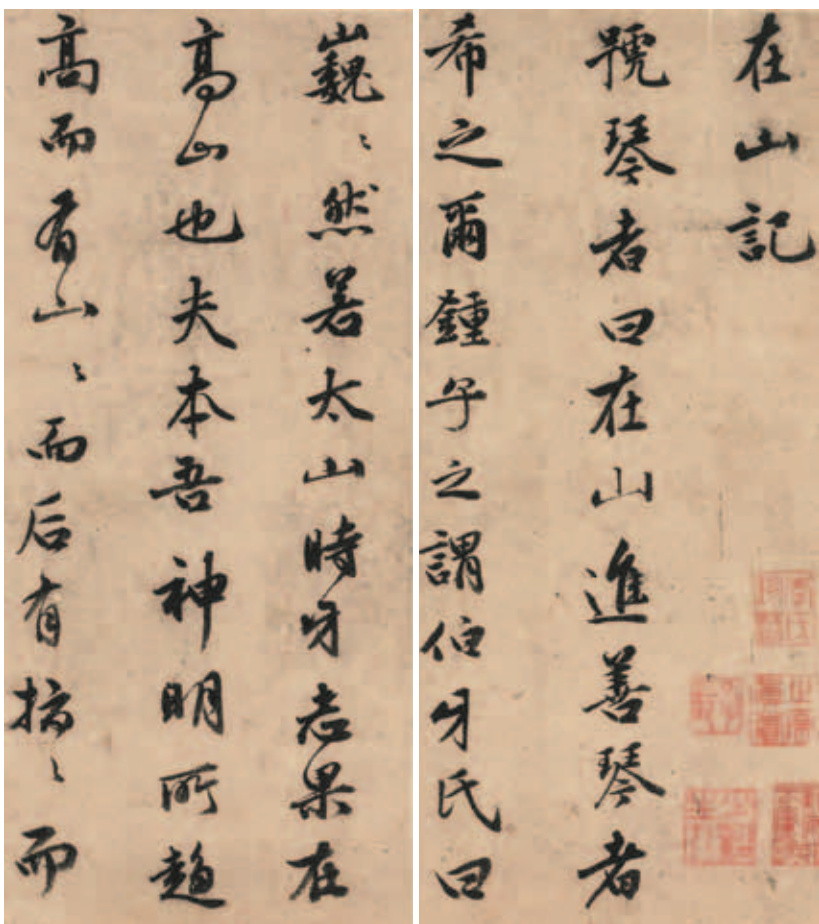 在山記
琴者曰在山進善琴者
希之爾鍾子之謂伯牙氏曰
巍〻然若太山時牙志果在
高山也夫本吾神明所趨
高而有山〻而后有〻而